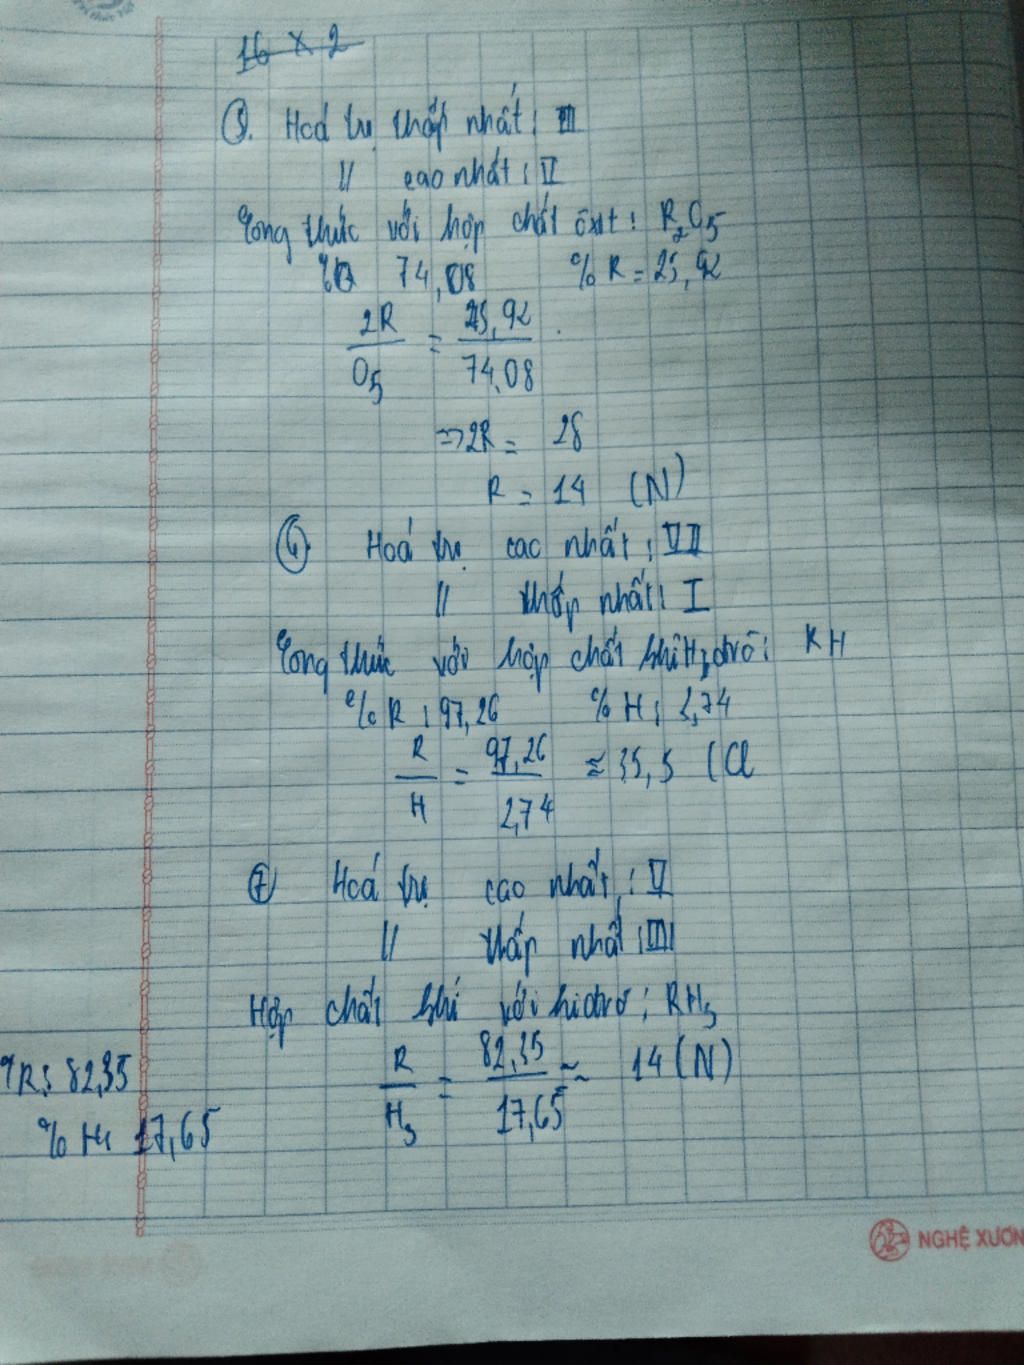 16 x 2
⑤. Hoá trị thấp nhất: III
// cao nhất: V
Công thức với hợp chất ôxit: R2O5
%O 74,08 % R = 25,92
2R / O5 = 25,92 / 74,08
=> 2R = 28
R = 14 (N)
⑥ Hoá trị cao nhất: VII
// thấp nhất: I
Công thức với hợp chất khí Hiđrô: RH
% R: 97,26 % H: 2,74
R / H = 97,26 / 2,74 ≈ 35,5 (Cl
⑦ Hoá trị cao nhất: V
// thấp nhất: III
Hợp chất khí với hiđrô: RH3
%R: 82,35
% H: 17,65
R / H3 = 82,35 / 17,65 ≈ 14 (N)
NGHỆ XƯƠN